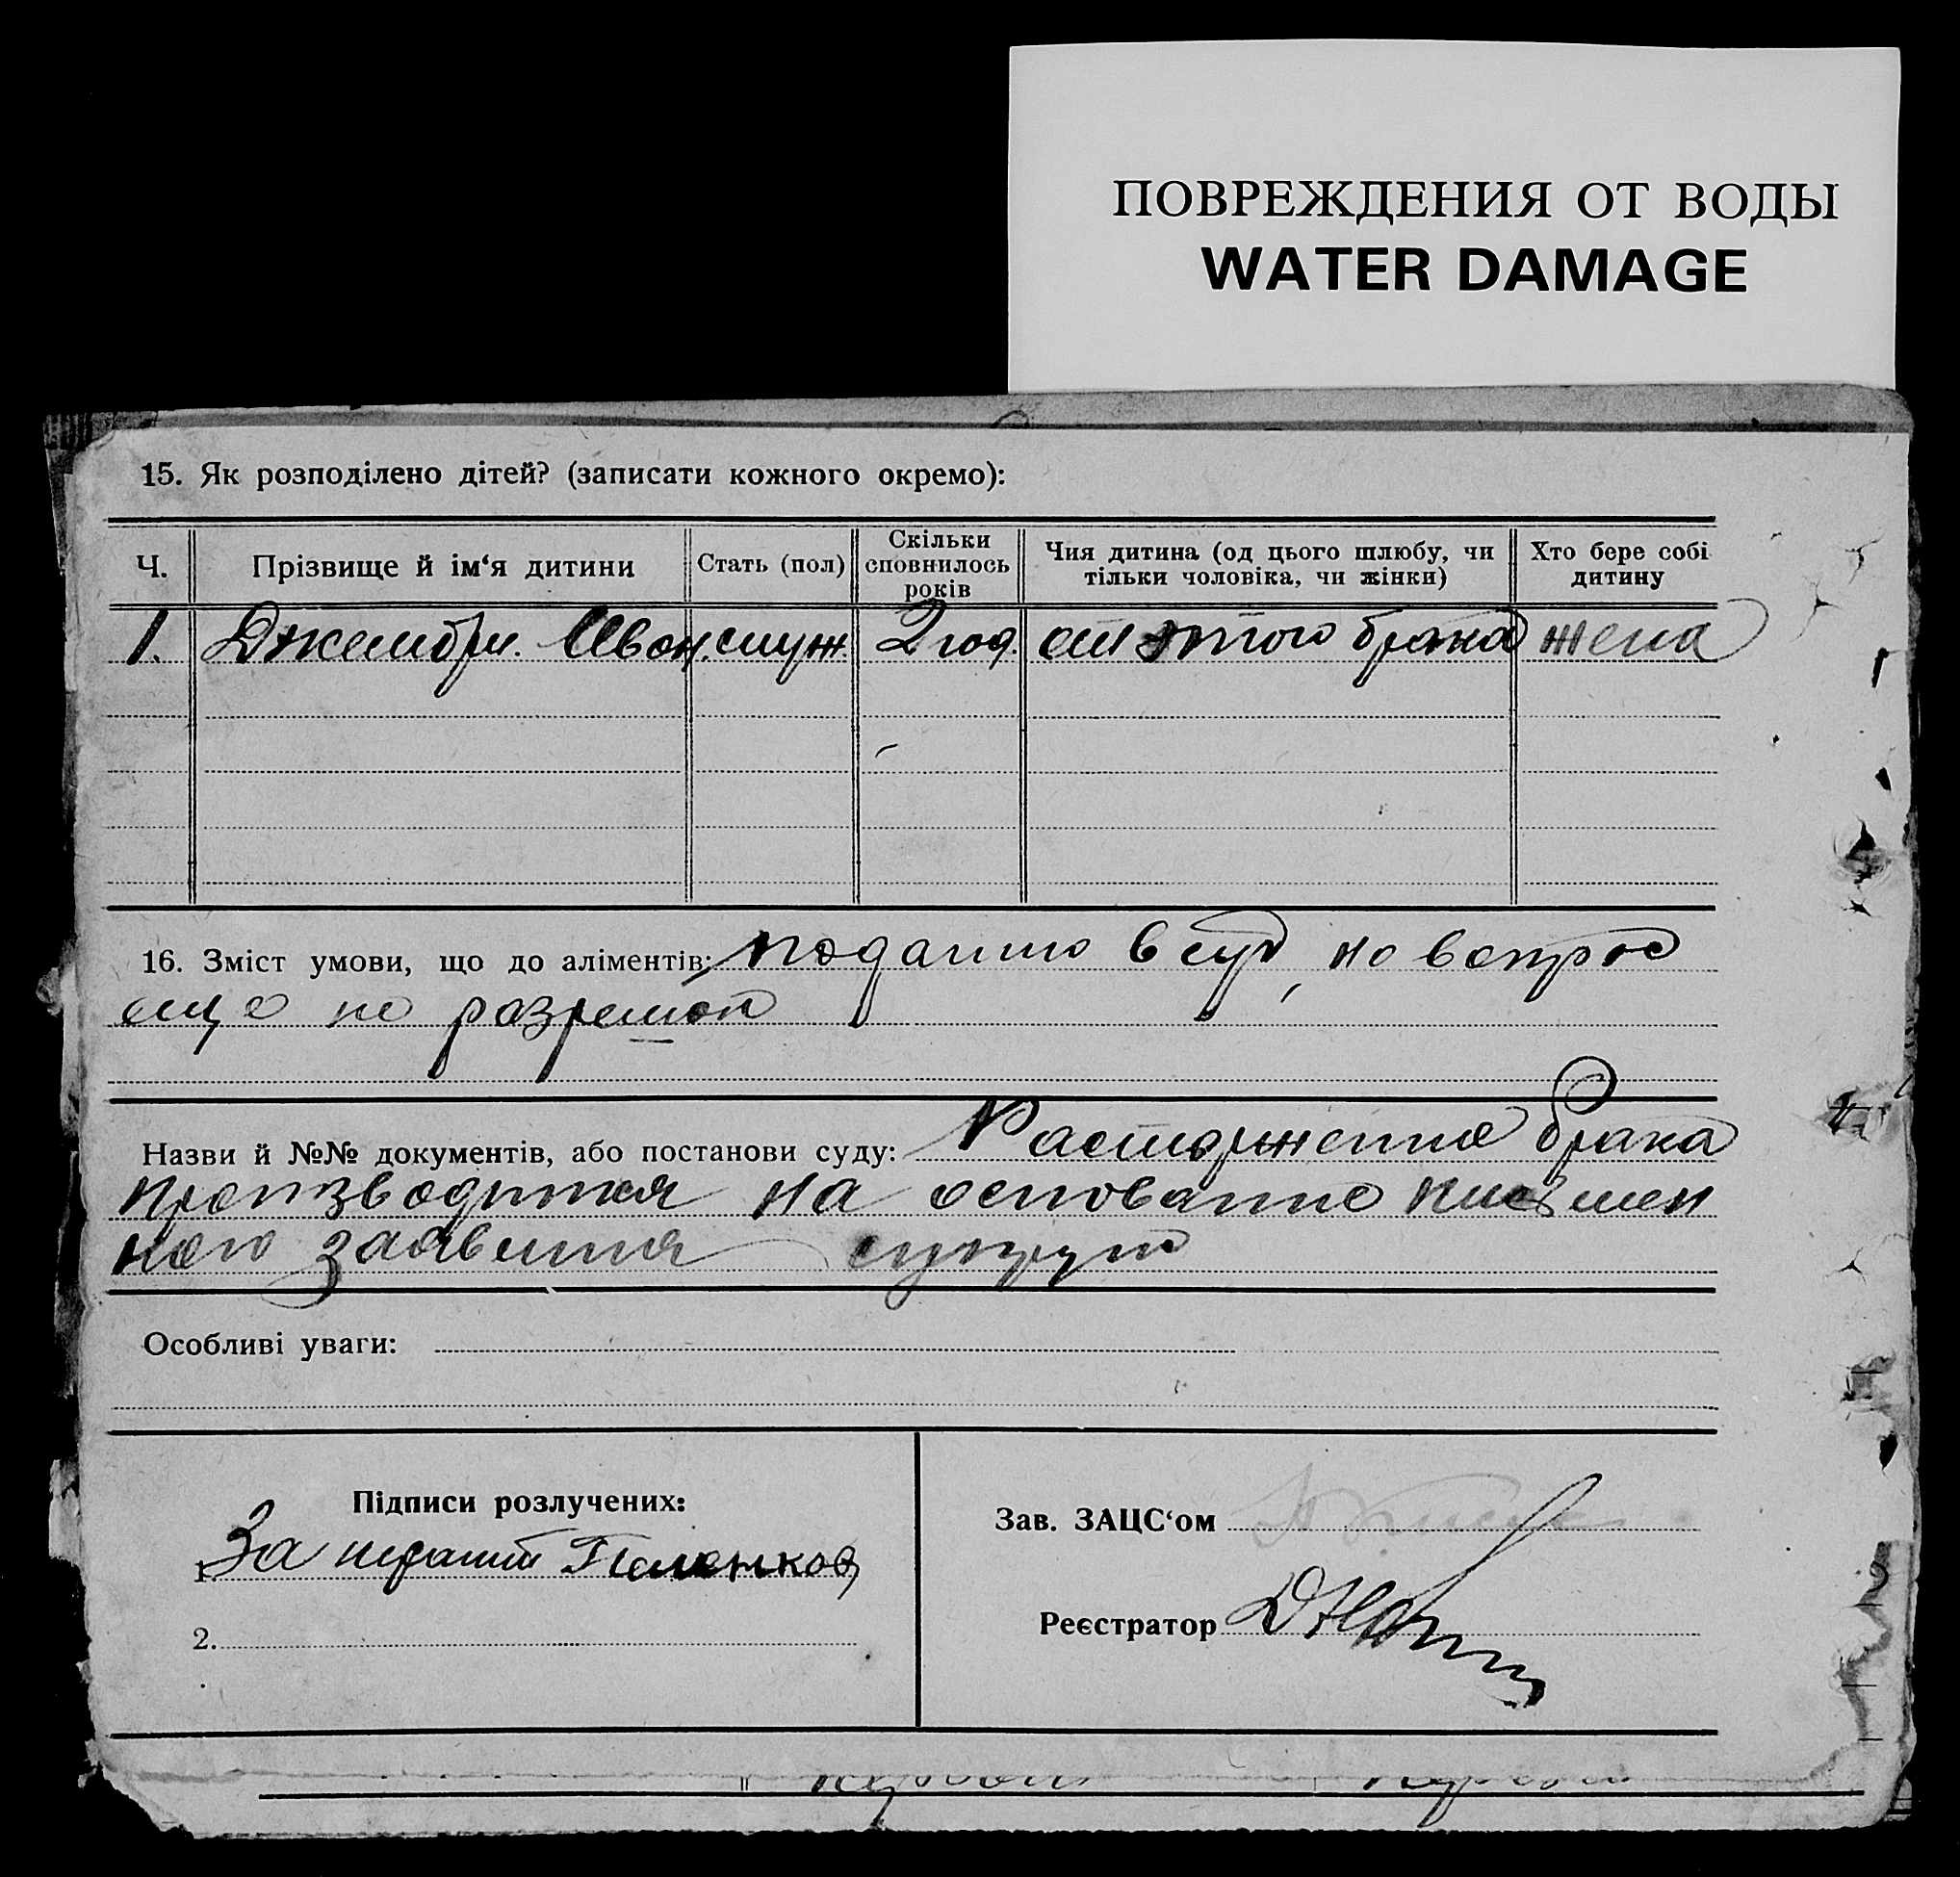 ПОВРЕЖДЕНИЯ ОТ ВОДЫ
WATER DAMAGE
15. Як розподілено дітей? (записати кожного окремо):
Ч. Прізвище й ім‘я дитини Стать (пол) Скільки сповнилось років Чия дитина (од цього шлюбу, чи тільки чоловіка, чи жінки) Хто бере собі дитину
1. Иван. муж. 2 год. от этого брака жена
16. Зміст умови, що до аліментів: подано в суд, но вопрос
еще не разрешон
Назви й №№ документів, або постанови суду: Расторжение брака
производится на основание письмен
ного заявления
Особливі уваги:
Підписи розлучених:
Зав. ЗАЦС‘ом
1. За
Реєстратор
2.